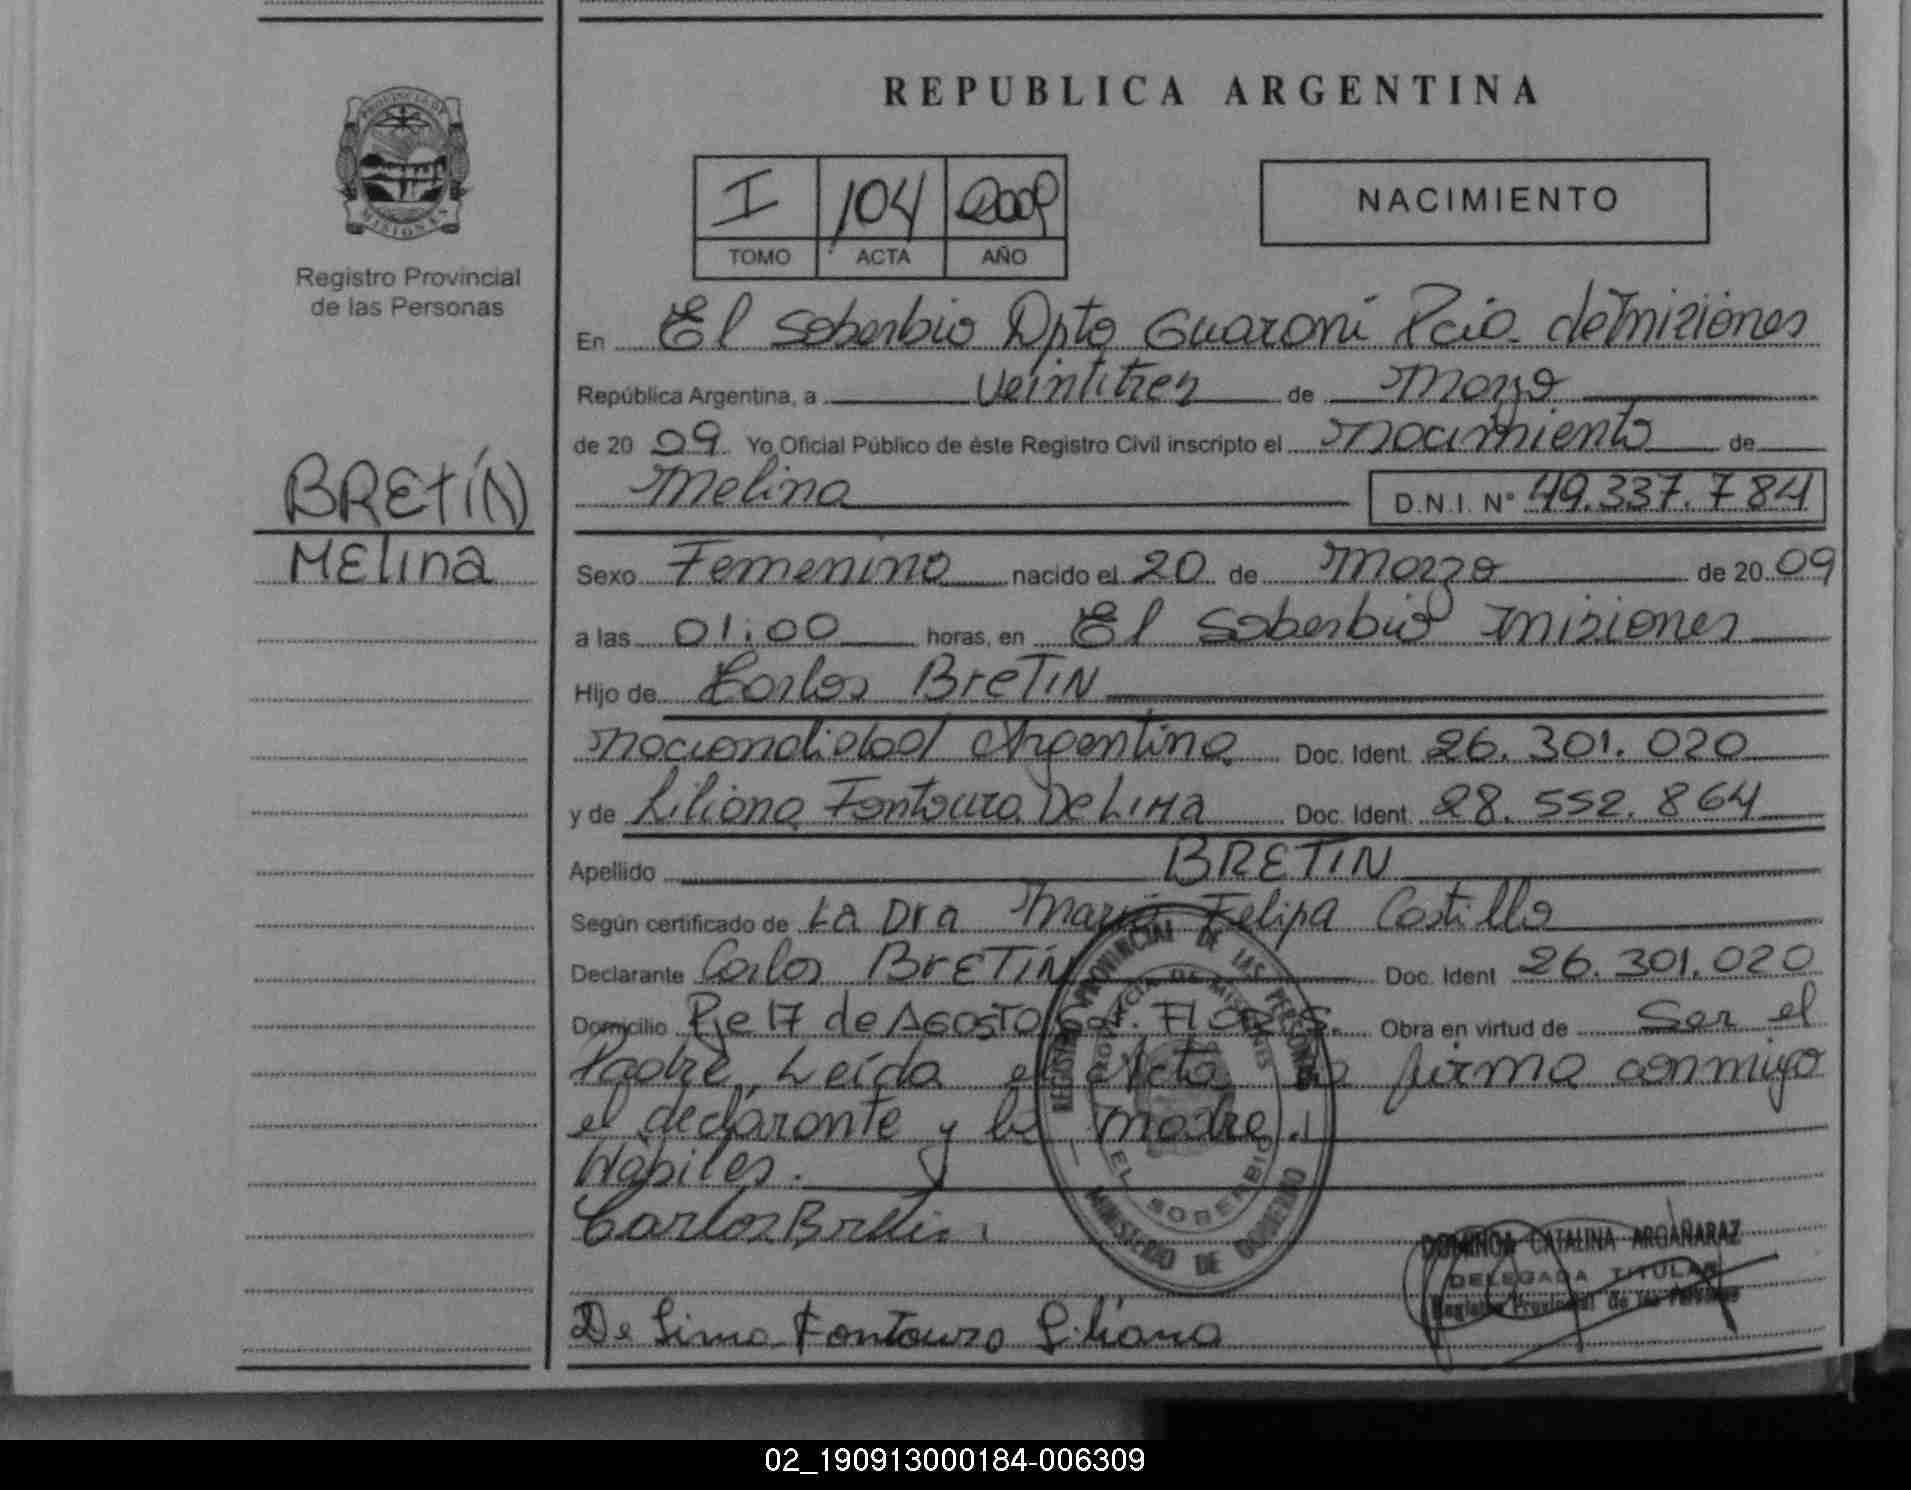 REPUBLICA ARGENTINA
PROVINCIA DE
MISIONES
Registro Provincial
de las Personas
I 104 2009
TOMO ACTA AÑO
NACIMIENTO
BRETÍN
MELina
En El Soberbio Dpto Guaraní Pcia. de Misiones
República Argentina, a veintitres de Marzo
de 20 09 Yo Oficial Público de éste Registro Civil inscripto el Nacimiento de
Melina D.N.I. N° 49.337.784
Sexo Femenino nacido el 20 de Marzo de 20 09
a las 01:00 horas, en El Soberbio Misiones
Hijo de Carlos BreTIN
Nacionalidad Argentina Doc. Ident. 26.301.020
y de Liliana Fontoura De LIMA Doc. Ident. 28.552.864
Apellido BRETIN
Según certificado de LA Dra María Felipa Castillo
Declarante Carlos BrETÍN Doc. Ident 26.301.020
Domicilio Pje 17 de AGOSTO Obra en virtud de Ser el
Padre, Leída el Acta la firma conmigo
el declarante y la madre.
Habiles.
Carlos Bretin
De Lima Fontoura Liliana
REGISTRO PROVINCIAL DE LAS PERSONAS
PROVINCIA DE MISIONES
EL SOBERBIO
MINISTERIO DE GOBIERNO
DOMINGA CATALINA ARGAÑARAZ
DELEGADA TITULAR
Registro Provincial de las Personas
02_190913000184-006309